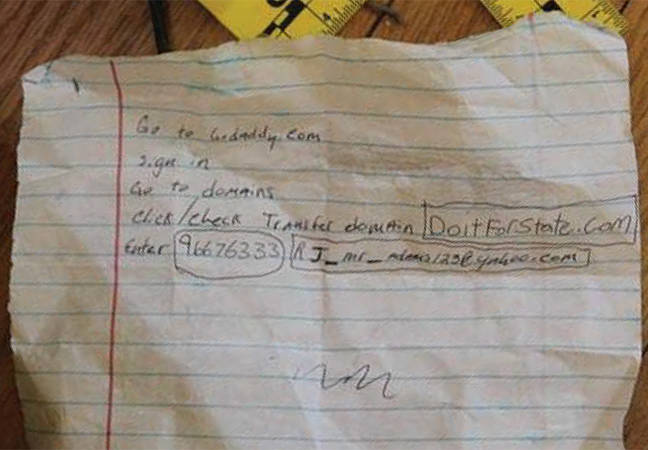 Go to Godaddy.com
sign in
Go to domains
Click/check Transfer domain DoitForState.com
Enter 96676333